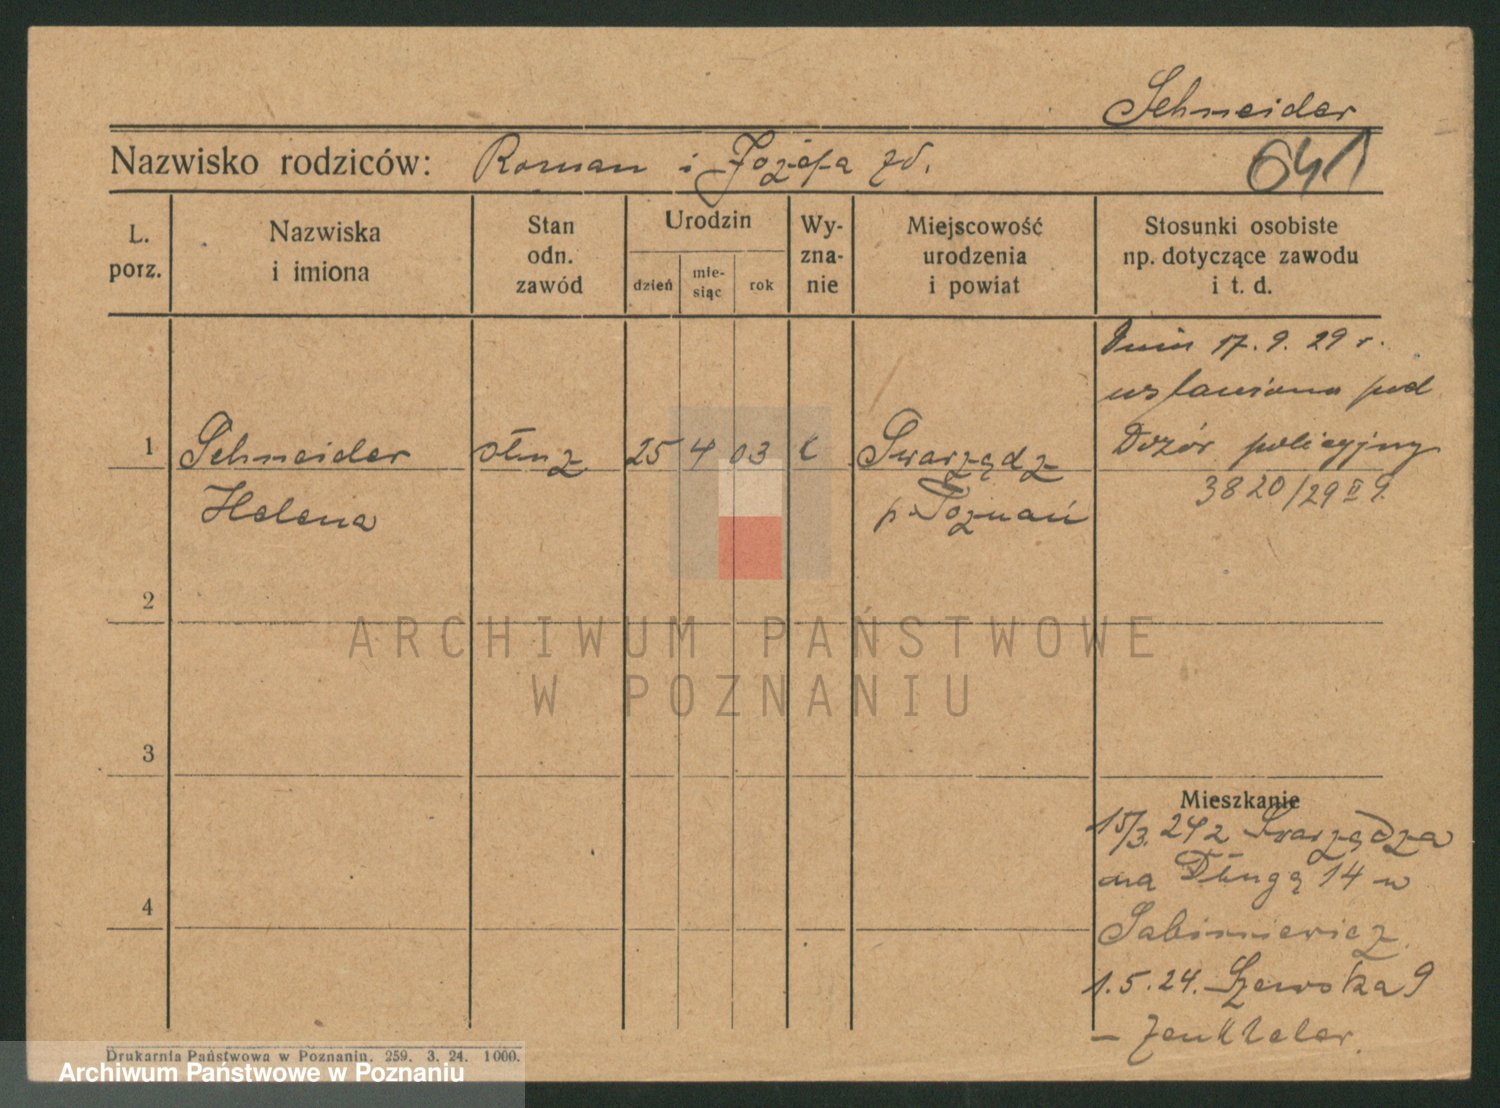 Schneider
Nazwisko rodziców: Roman i Józefa zd.
641
L. porz.
Nazwiska i imiona
Stan odn. zawód
Urodzin
dzień
mie-siąc
rok
Wy-zna-nie
Miejscowość urodzenia i powiat
Stosunki osobiste np. dotyczące zawodu i t. d.
Dnia 17. 9. 29 r.
wstawiona pod
Dozór policyjny
3820/29 II 9.
1 Schneider służ 25 4 03 k Swarzędz
Helena p. Poznań
2
3
4
Mieszkanie
15/3. 24 z Swarzędza
na Długą 14 u
1. 5. 24. Szewska 9
– Zenkteler.
Drukarnia Państwowa w Poznaniu. 259. 3. 24. 1000.
ARCHIWUM PAŃSTWOWE
W POZNANIU
Archiwum Państwowe w Poznaniu